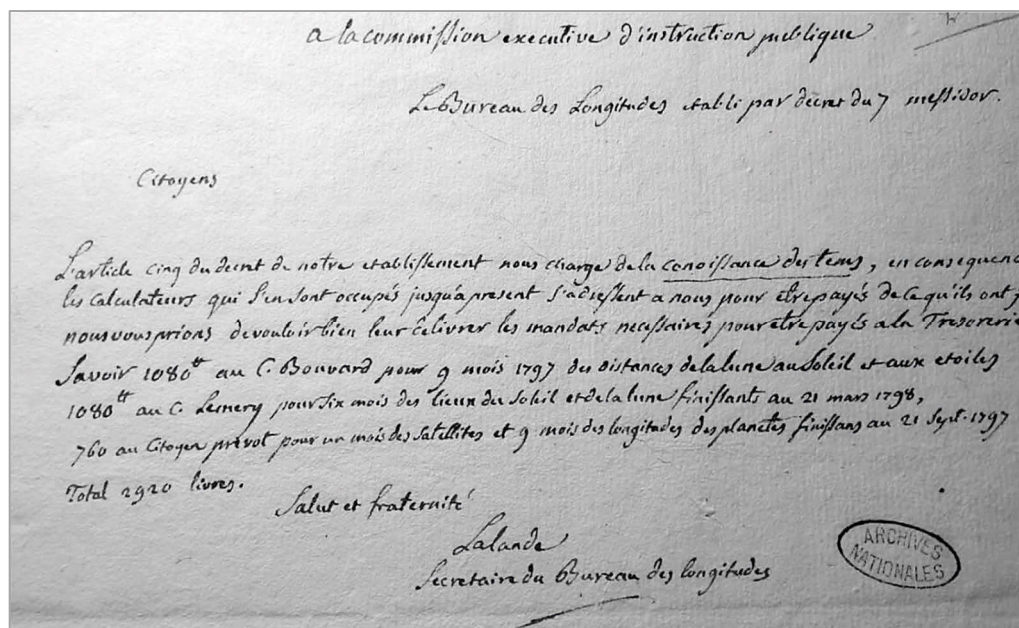 a la commission executive d'instruction publique
Le Bureau des Longitudes etabli par decret du 7 messidor.
Citoyens
L'article cinq du decret de notre etablissement nous charge de la conoissance des tems, en consequenc
les calculateurs qui s'en sont occupés jusqu'a present s'adressent a nous pour etre payés de ce qu'ils ont
nous vous prions de vouloir bien leur délivrer les mandats necessaires pour etre payés a la Tresorerie
Savoir 1080tt au C. Bouvard pour 9 mois 1797 des distances de la lune au Soleil et aux etoiles
1080tt au C. Lemery pour six mois des lieux du Soleil et de la lune finissants au 21 mars 1798,
760 au Citoyen prevot pour un mois des satellites et 9 mois des longitudes des planetes finissans au 21 Sept. 1797
Total 2920 livres.
Salut et fraternité
Lalande
Secretaire du Bureau des longitudes
ARCHIVES
NATIONALES